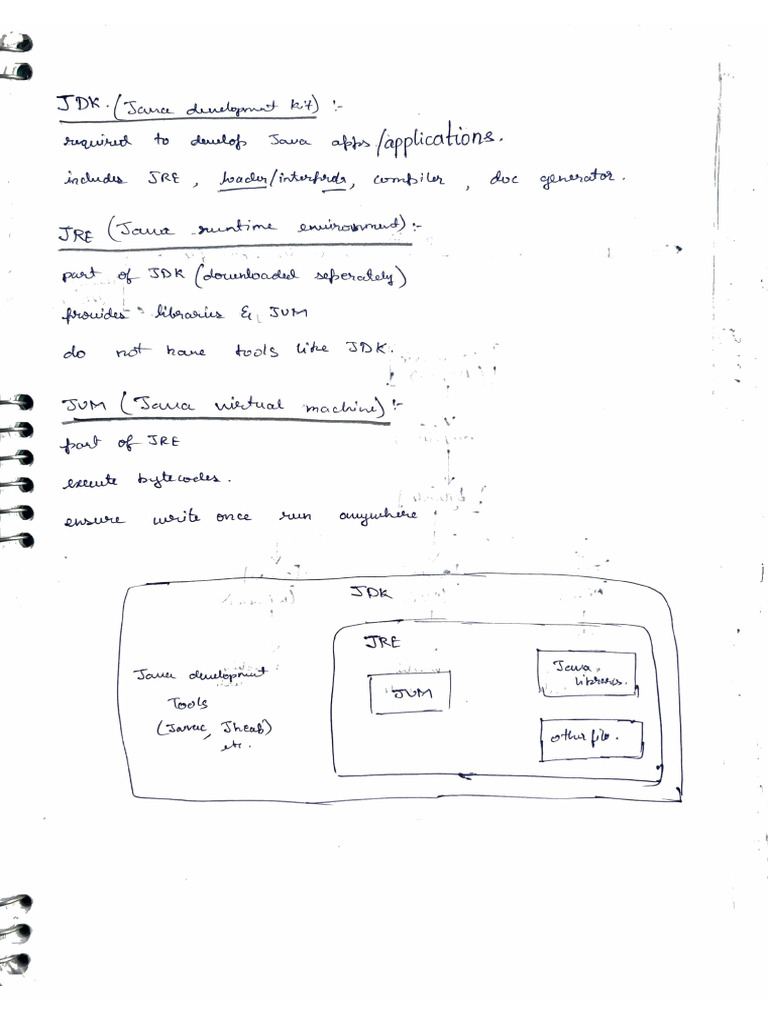 JDK. (Java development kit) :-
required to develop Java apps/applications.
includes JRE, loader/interprdr, compiler, doc generator.
JRE (Java runtime environment) :-
part of JDK (downloaded seperately)
provides libraries & JVM
do not have tools like JDK.
JVM (Java virtual machine) :-
part of JRE
execute bytecodes.
ensure write once run anywhere
JDK
JRE
Java development
Tools
(Javac, Jheab)
etc.
JVM
Java
libraries.
other file.